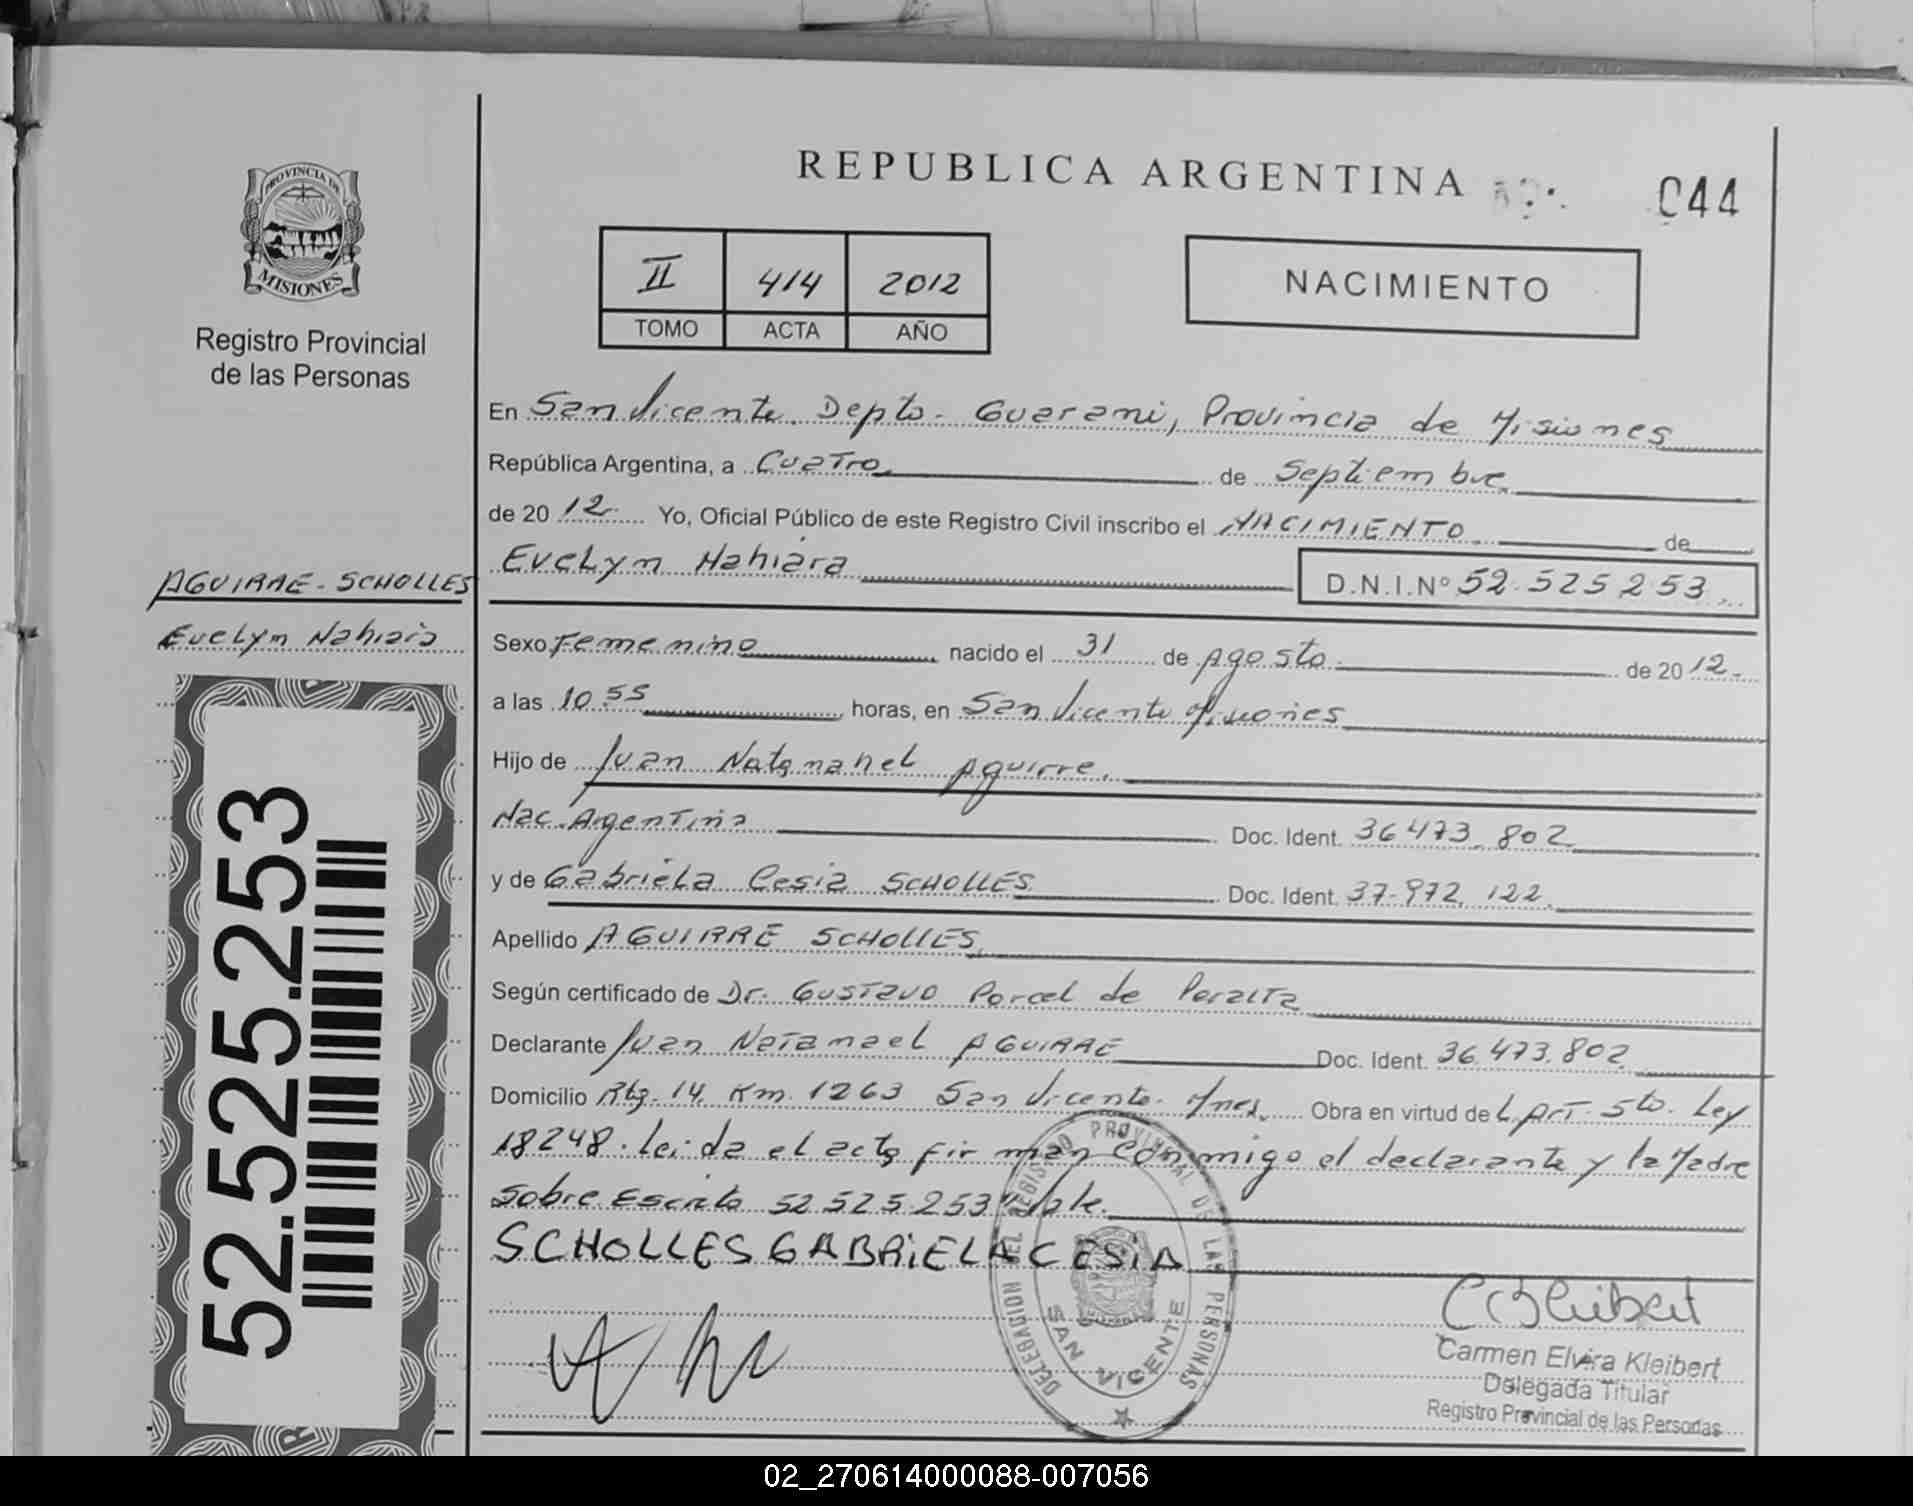 REPUBLICA ARGENTINA
044
PROVINCIA DE
MISIONES
Registro Provincial
de las Personas
II 414 2012
TOMO ACTA AÑO
NACIMIENTO
En San Vicente Depto. Guarani, Provincia de Misiones
República Argentina, a Cuatro de Septiembre
de 2012 Yo, Oficial Público de este Registro Civil inscribo el NACIMIENTO de
Evelyn Nahiara D.N.I.Nº 52.525253
AGUIRRE - SCHOLLES
Evelyn Nahiara
Sexo Femenino nacido el 31 de Agosto de 2012
a las 10 55 horas, en San Vicente Misiones
Hijo de Juan Natanahel Aguirre.
Nac. Argentina Doc. Ident. 36 473 802
y de Gabriela Cesia SCHOLLES Doc. Ident. 37-972 122
Apellido AGUIRRE SCHOLLES
Según certificado de Dr. GUSTAVO Porcel de Peralta
Declarante Juan Natanael AGUIRRE Doc. Ident. 36.473.802
Domicilio Rta. 14 Km. 1263 San Vicente. Mnes. Obra en virtud de L Art. 5to. Ley
18248. Leida el acta firman Conmigo el declarante y la Madre
Sobre Escrito 52 525.253 "Vale.
SCHOLLES GABRiELA CESiA
52.525.253
DELEGACION DEL REGISTRO PROVINCIAL DE LAS PERSONAS
SAN VICENTE
Carmen Elvira Kleibert
Delegada Titular
Registro Provincial de las Personas
02_270614000088-007056